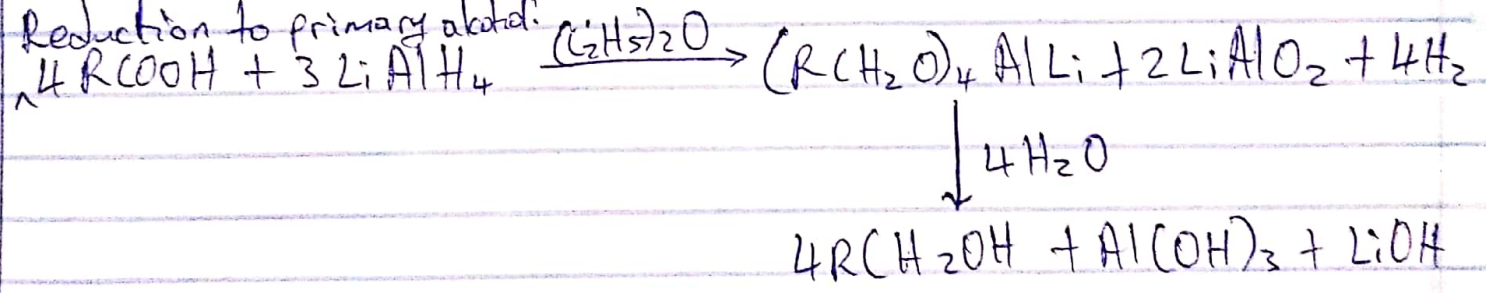 Reduction to primary alcohol:
4RCOOH + 3LiAlH₄ (C₂H₅)₂O → (RCH₂O)₄AlLi + 2LiAlO₂ + 4H₂
↓ 4H₂O
4RCH₂OH + Al(OH)₃ + LiOH